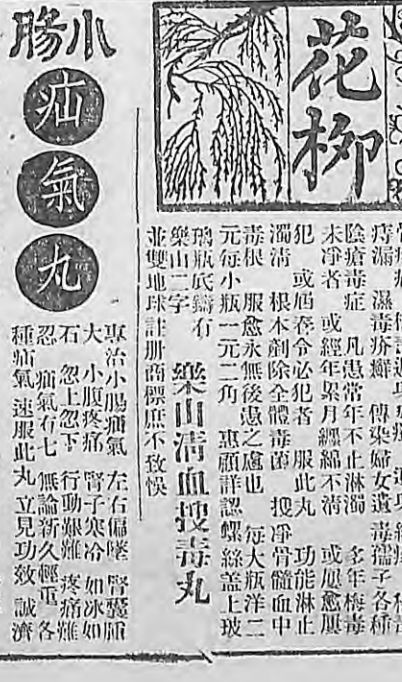 花柳
痔漏 濕毒疥癬 傳染婦女遺毒孺子各種
陰瘡毒症 凡患常年不止淋濁 多年梅毒
未淨者 或經年累月纏綿不清 或屢愈屢
犯 或逢春令必犯者 服此丸 功能淋止
濁清 根本剷除全體毒菌 搜凈骨髓血中
毒根 服愈永無後患之慮也 每大瓶洋二
元每小瓶一元二角 惠顧詳認螺絲蓋上玻
璃瓶底鑄有
樂山二字
並雙地球註册商標庶不致悞
樂山清血搜毒丸
小腸
疝氣丸
專治小腸疝氣 左右偏墜 腎囊腫
大 小腹疼痛 腎子寒冷 如冰如
石 忽上忽下 行動艱難 疼痛難
忍 疝氣有七 無論新久輕重 各
種疝氣 速服此丸 立見功效 誠濟